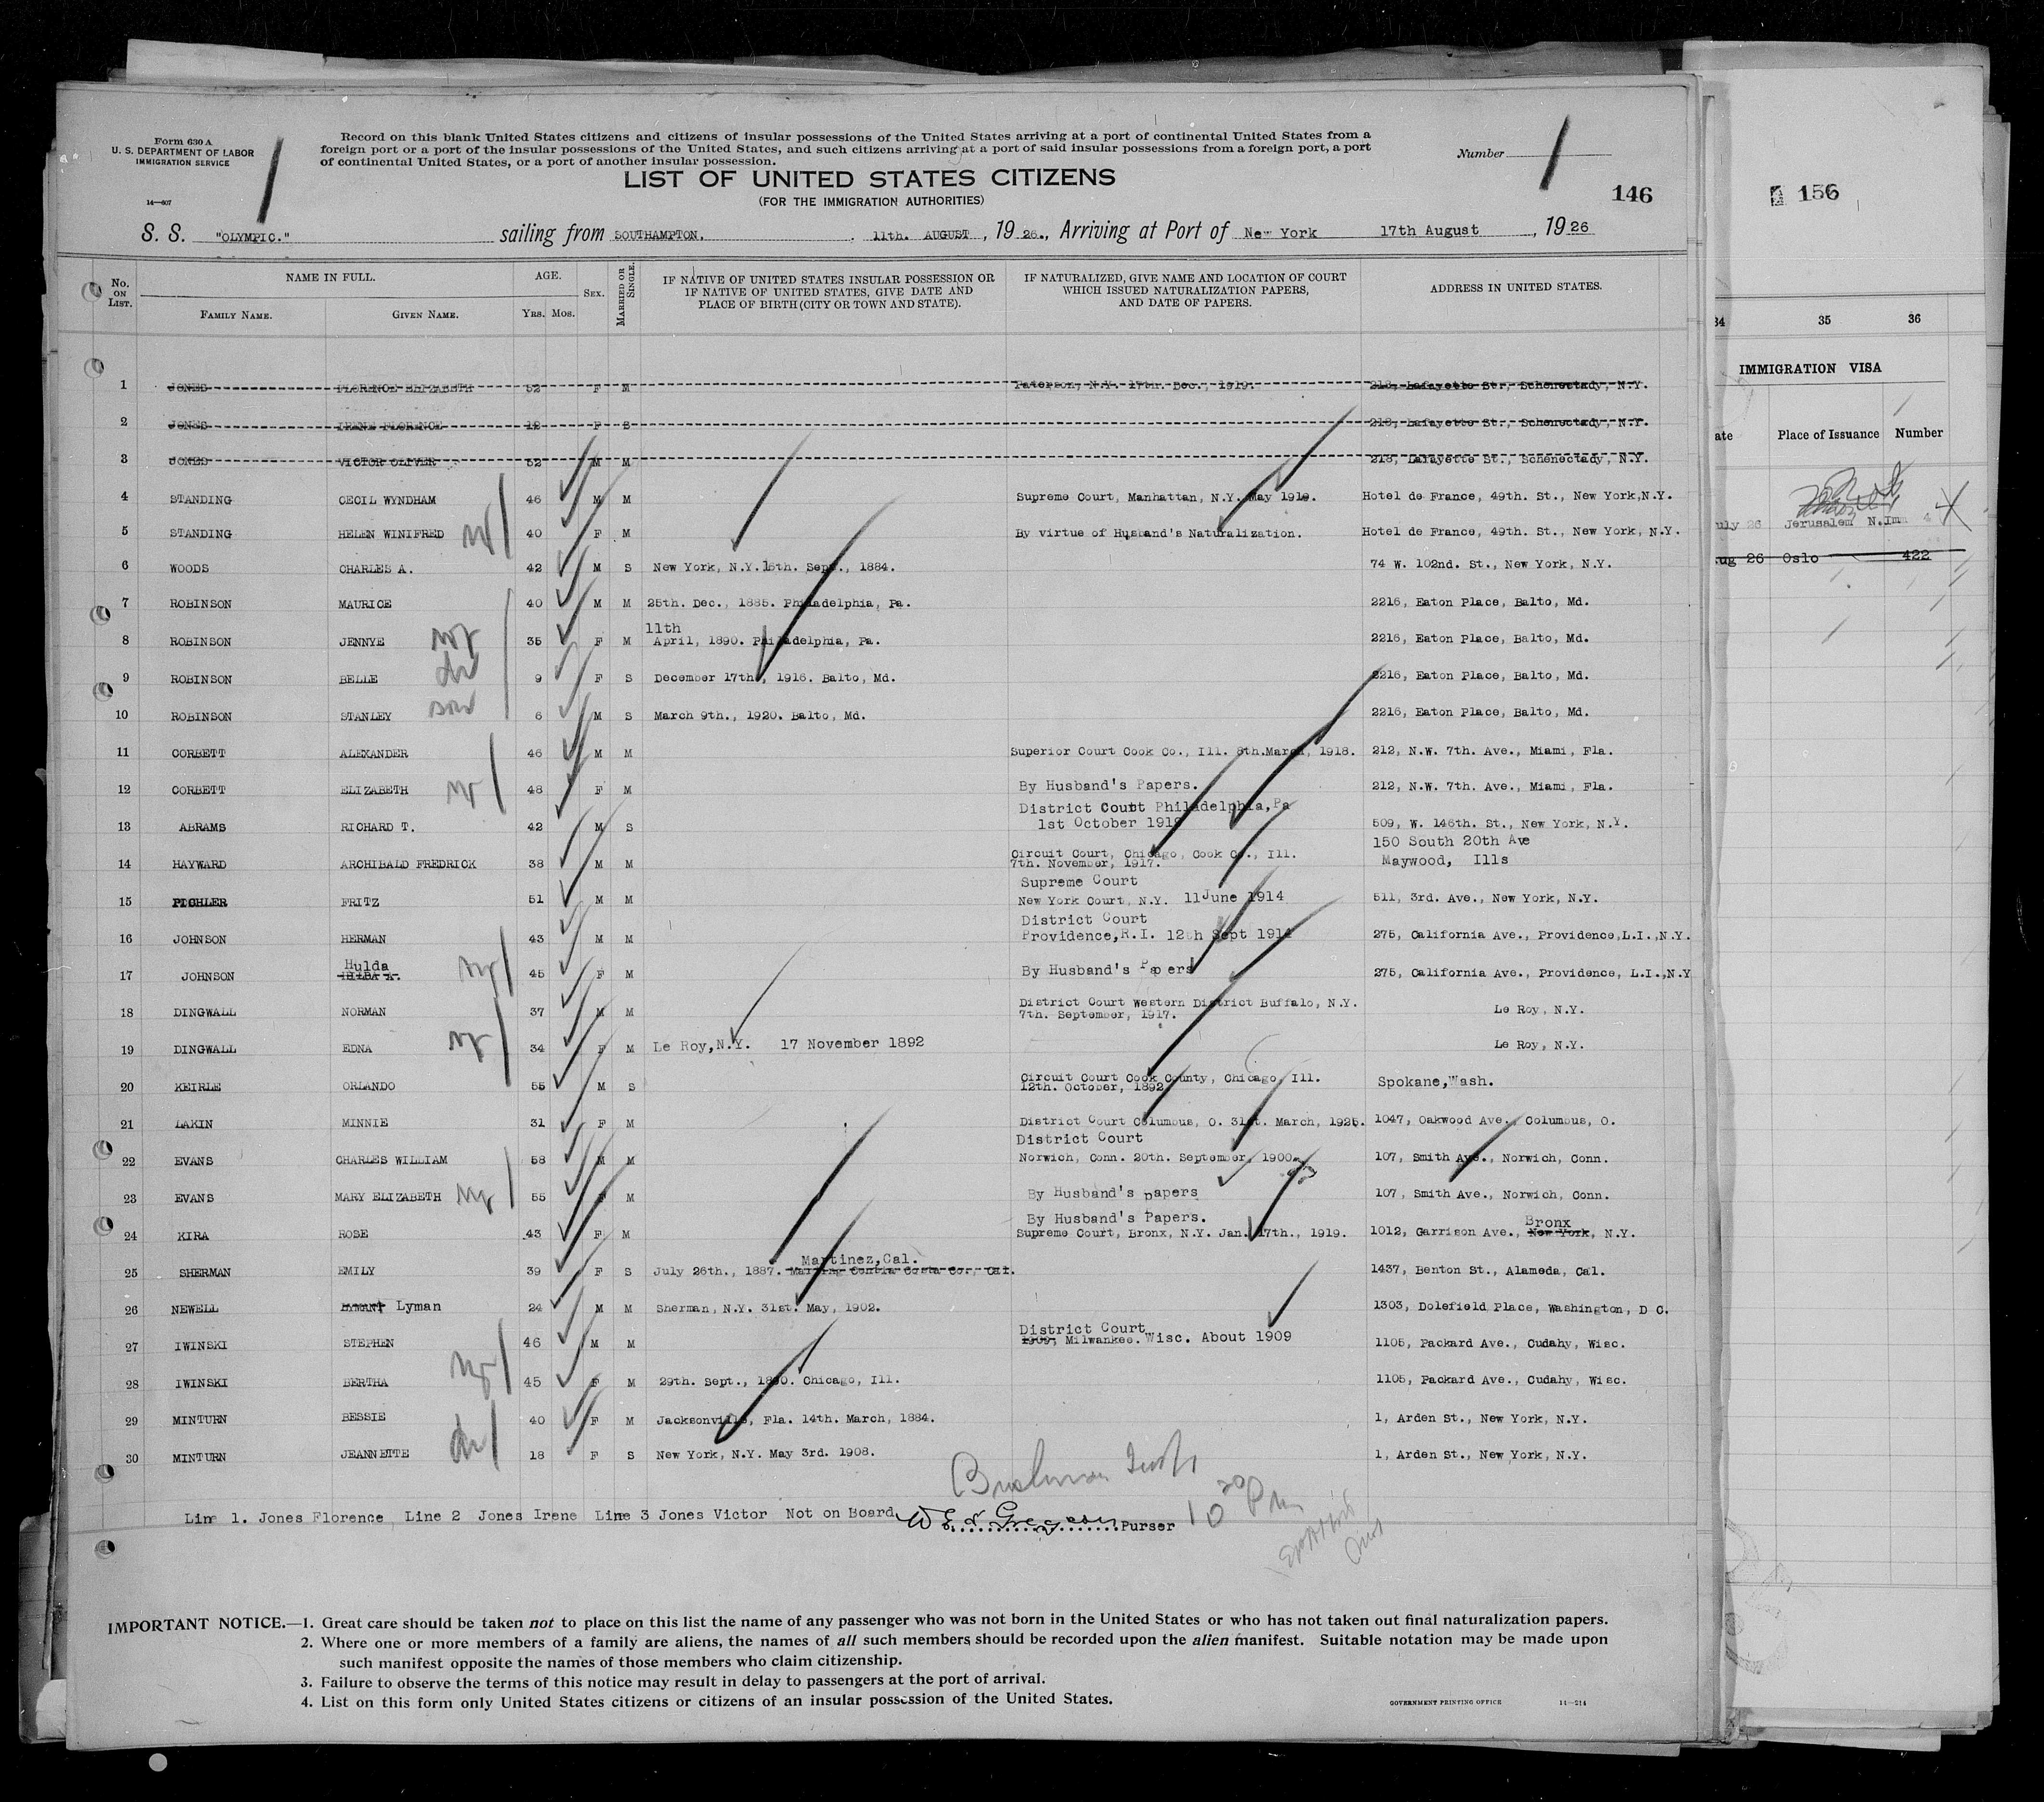 Form 630 A
U. S. DEPARTMENT OF LABOR
IMMIGRATION SERVICE
14—607
Record on this blank United States citizens and citizens of insular possessions of the United States arriving at a port of continental United States from a
foreign port or a port of the insular possessions of the United States, and such citizens arriving at a port of said insular possessions from a foreign port, a port
of continental United States, or a port of another insular possession.
Number
LIST OF UNITED STATES CITIZENS
(FOR THE IMMIGRATION AUTHORITIES)
146
S. S. "OLYMPIC." sailing from SOUTHAMPTON. 11th. AUGUST, 1926., Arriving at Port of New York 17th August, 1926
No. ON LIST. NAME IN FULL. AGE. SEX. MARRIED OR SINGLE. IF NATIVE OF UNITED STATES INSULAR POSSESSION OR IF NATIVE OF UNITED STATES, GIVE DATE AND PLACE OF BIRTH (CITY OR TOWN AND STATE). IF NATURALIZED, GIVE NAME AND LOCATION OF COURT WHICH ISSUED NATURALIZATION PAPERS, AND DATE OF PAPERS. ADDRESS IN UNITED STATES.
FAMILY NAME. GIVEN NAME. YRS. MOS.
1 JONES FLORENCE ELIZABETH 52 F M Paterson, N.Y. 17th. Dec., 1919. 218, Lafayette Str, Schenectady, N.Y.
2 JONES IRENE FLORENCE 12 F S 218, Lafayette St., Schenectady, N.Y.
3 JONES VICTOR OLIVER 52 M M 218, Lafayette St., Schenectady, N.Y.
4 STANDING CECIL WYNDHAM 46 M M Supreme Court, Manhattan, N.Y. May 1919. Hotel de France, 49th. St., New York,N.Y.
5 STANDING HELEN WINIFRED 40 F M By virtue of Husband's Naturalization. Hotel de France, 49th. St., New York, N.Y.
6 WOODS CHARLES A. 42 M S New York, N.Y. 15th. Sept., 1884. 74 W. 102nd. St., New York, N.Y.
7 ROBINSON MAURICE 40 M M 25th. Dec., 1885. Philadelphia, Pa. 2216, Eaton Place, Balto, Md.
11th
8 ROBINSON JENNYE 35 F M April, 1890. Philadelphia, Pa. 2216, Eaton Place, Balto, Md.
9 ROBINSON BELLE 9 F S December 17th., 1916. Balto, Md. 2216, Eaton Place, Balto, Md.
10 ROBINSON STANLEY son 6 M S March 9th., 1920. Balto, Md. 2216, Eaton Place, Balto, Md.
11 CORBETT ALEXANDER 46 M M Superior Court Cook Co., Ill. 8th.March, 1918. 212, N.W. 7th. Ave., Miami, Fla.
12 CORBETT ELIZABETH 48 F M By Husband's Papers. 212, N.W. 7th. Ave., Miami, Fla.
District Coutt Philadelphia,Pa
13 ABRAMS RICHARD T. 42 M S 1st October 1918 509, W. 146th. St., New York, N.Y.
150 South 20th Ave
14 HAYWARD ARCHIBALD FREDRICK 38 M M Circuit Court, Chicago, Cook Co., Ill. Maywood, Ills
7th. November, 1917.
Supreme Court
15 PICHLER FRITZ 51 M M New York Court, N.Y. 11 June 1914 511, 3rd. Ave., New York, N.Y.
District Court
16 JOHNSON HERMAN 43 M M Providence,R.I. 12th Sept 1914 275, California Ave., Providence,L.I.,N.Y.
Hulda
17 JOHNSON 45 F M By Husband's Papers 275, California Ave., Providence, L.I.,N.Y
18 DINGWALL NORMAN 37 M M District Court Western District Buffalo, N.Y. Le Roy, N.Y.
7th. September, 1917.
19 DINGWALL EDNA 34 F M Le Roy,N.Y. 17 November 1892 Le Roy, N.Y.
20 KEIRLE ORLANDO 55 M S Circuit Court Cook County, Chicago, Ill. Spokane,Wash.
12th. October, 1892
21 LAKIN MINNIE 31 F M District Court Columbus, O. 31st. March, 1925. 1047, Oakwood Ave., Columbus, O.
District Court
22 EVANS CHARLES WILLIAM 58 M M Norwich, Conn. 20th. September, 1900. 107, Smith Ave., Norwich, Conn.
23 EVANS MARY ELIZABETH 55 F M By Husband's papers 107, Smith Ave., Norwich, Conn.
By Husband's Papers. Bronx
24 KIRA ROSE 43 F M Supreme Court, Bronx, N.Y. Jan. 17th., 1919. 1012, Garrison Ave., New York, N.Y.
Martinez,Cal.
25 SHERMAN EMILY 39 F S July 26th., 1887. 1437, Benton St., Alameda, Cal.
26 NEWELL Lyman 24 M M Sherman, N.Y. 31st. May, 1902. 1303, Dolefield Place, Washington, D C.
District Court
27 IWINSKI STEPHEN 46 M M 1909, Milwankee. Wisc. About 1909 1105, Packard Ave., Cudahy, Wisc.
28 IWINSKI BERTHA 45 F M 29th. Sept., 1880. Chicago, Ill. 1105, Packard Ave., Cudahy, Wisc.
29 MINTURN BESSIE 40 F M Jacksonville, Fla. 14th. March, 1884. 1, Arden St., New York, N.Y.
30 MINTURN JEANNETTE 18 F S New York, N.Y. May 3rd. 1908. 1, Arden St., New York, N.Y.
10 20 Pm
Line 1. Jones Florence Line 2 Jones Irene Line 3 Jones Victor Not on Board Purser
IMPORTANT NOTICE.—1. Great care should be taken not to place on this list the name of any passenger who was not born in the United States or who has not taken out final naturalization papers.
2. Where one or more members of a family are aliens, the names of all such members should be recorded upon the alien manifest. Suitable notation may be made upon
such manifest opposite the names of those members who claim citizenship.
3. Failure to observe the terms of this notice may result in delay to passengers at the port of arrival.
4. List on this form only United States citizens or citizens of an insular possession of the United States.
GOVERNMENT PRINTING OFFICE 14—214
156
34 35 36
IMMIGRATION VISA
ate Place of Issuance Number
uly 26 Jerusalem N.Im 4
ug 26 Oslo 422